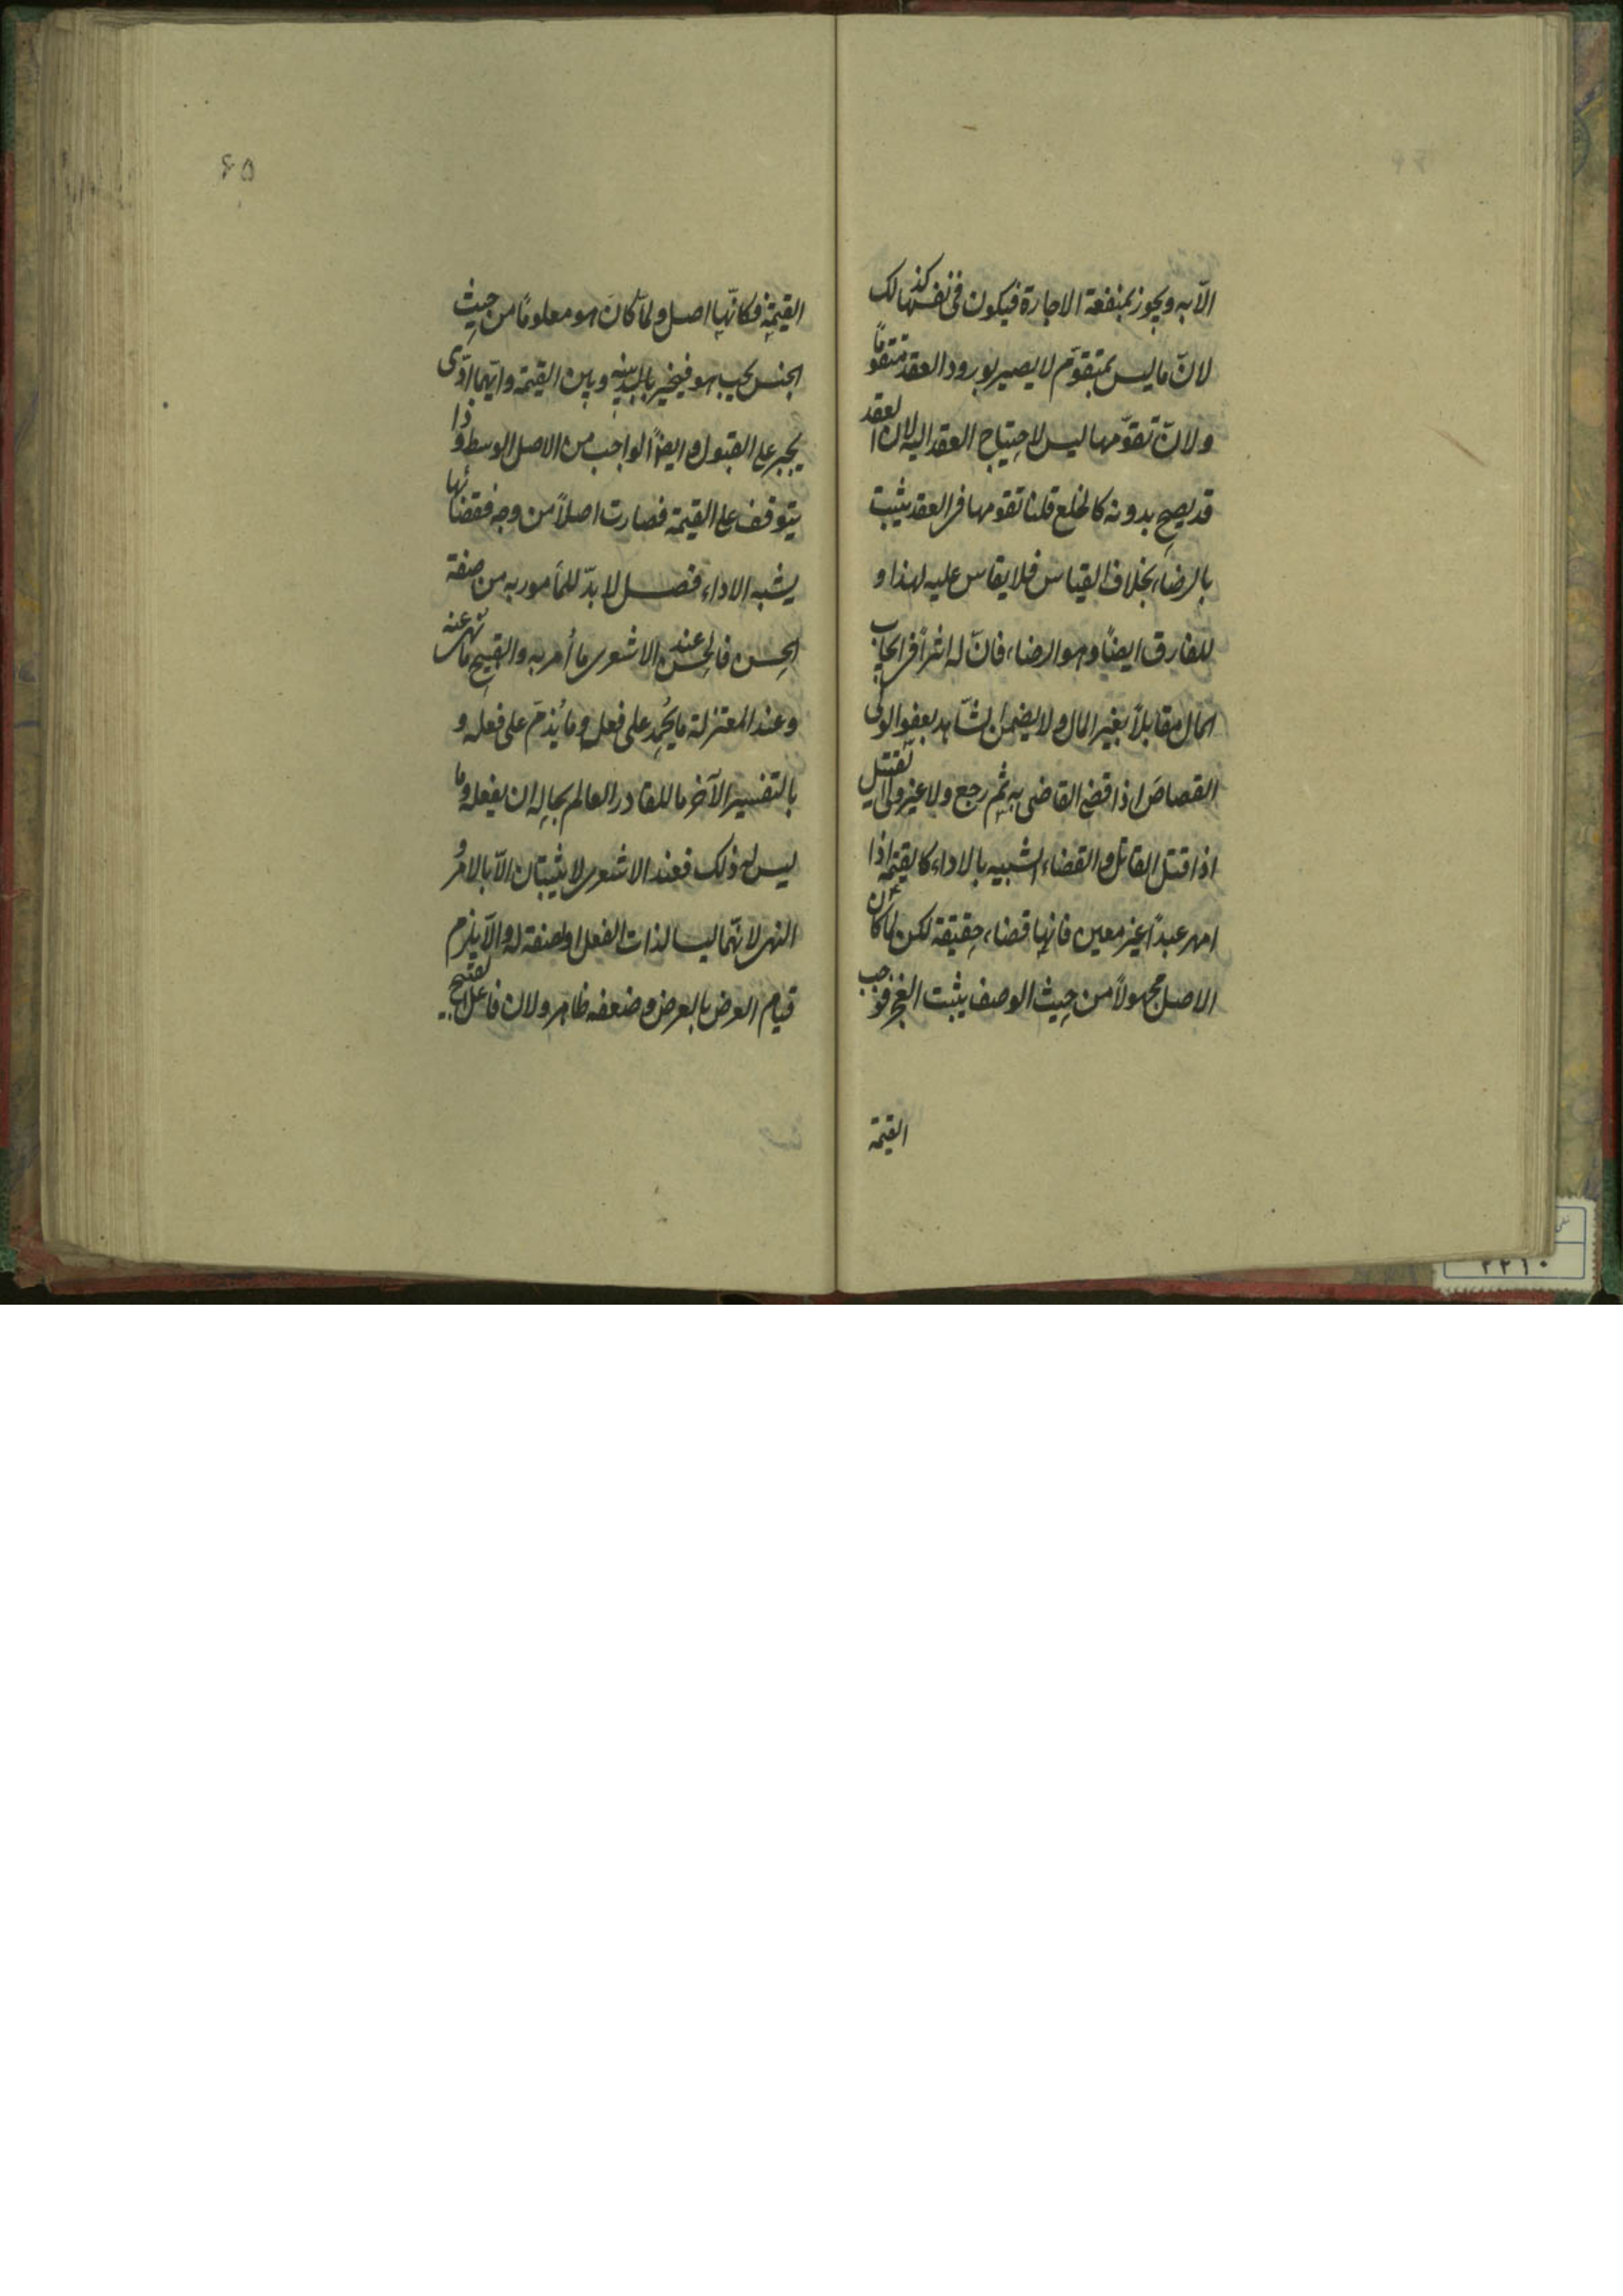 الّا به ويجوز بمنفعة الاجارة فيكون فى نفسها كذلك
لانّ ما ليس بمتقوّم لا يصير بورود العقد متقوّماً
ولانّ تقوّمها ليس لاحتياج العقد اليه لان العقد
قد يصح بدونه كالخلع قلنا تقومها فى العقد يثبت
بالرضاء بخلاف القياس فلا يقاس عليه لهذا و
للفارق ايضاً وهو الرضاء فانّ له اثراً فى ايجاب
المال مقابلاً بغير المال ولا يضمن الشّاهد بعفو الولى
القصاصَ اذا قضى القاضى به ثم رجع ولا غير ولى القتيل
اذا قتل القاتل والقضاء الشبيه بالاداء كالقيمة اذا
امهر عبداً غير معين فانها قضاء حقيقة لكن لما كان
الاصل مجهولاً من حيث الوصف يثبت العجز فوجب
القيمة
٤٥
القيمة فكانّها اصل ولمّا كانَ هو معلومًا من حيث
الجنس يجب هو فيخير بينه وبين القيمة وايّهما ادّى
يجبر على القبول وايضاً الواجب من الاصل الوسط وذا
يتوقف على القيمة فصارت اصلاً من وجه فقضائها
يشبه الاداء فصــل لا بدّ للمأمور به من صفة
الحسن فالحسن عند الاشعرى ما أمر به والقبيح ما نهى عنه
وعند المعتزلة ما يُحمد على فعله وما يُذمّ على فعله و
بالتفسير الآخر ما للقادر العالم بحاله ان يفعله وما
ليس له ذلك فعند الاشعرى لا يثبتان الّا بالامر و
النهى لانّهما ليسا لذات الفعل او لصفة له والّا يلزم
قيام العرض بالعرض وضعفه ظاهر ولان فاعل القبيح
٢٢١٠